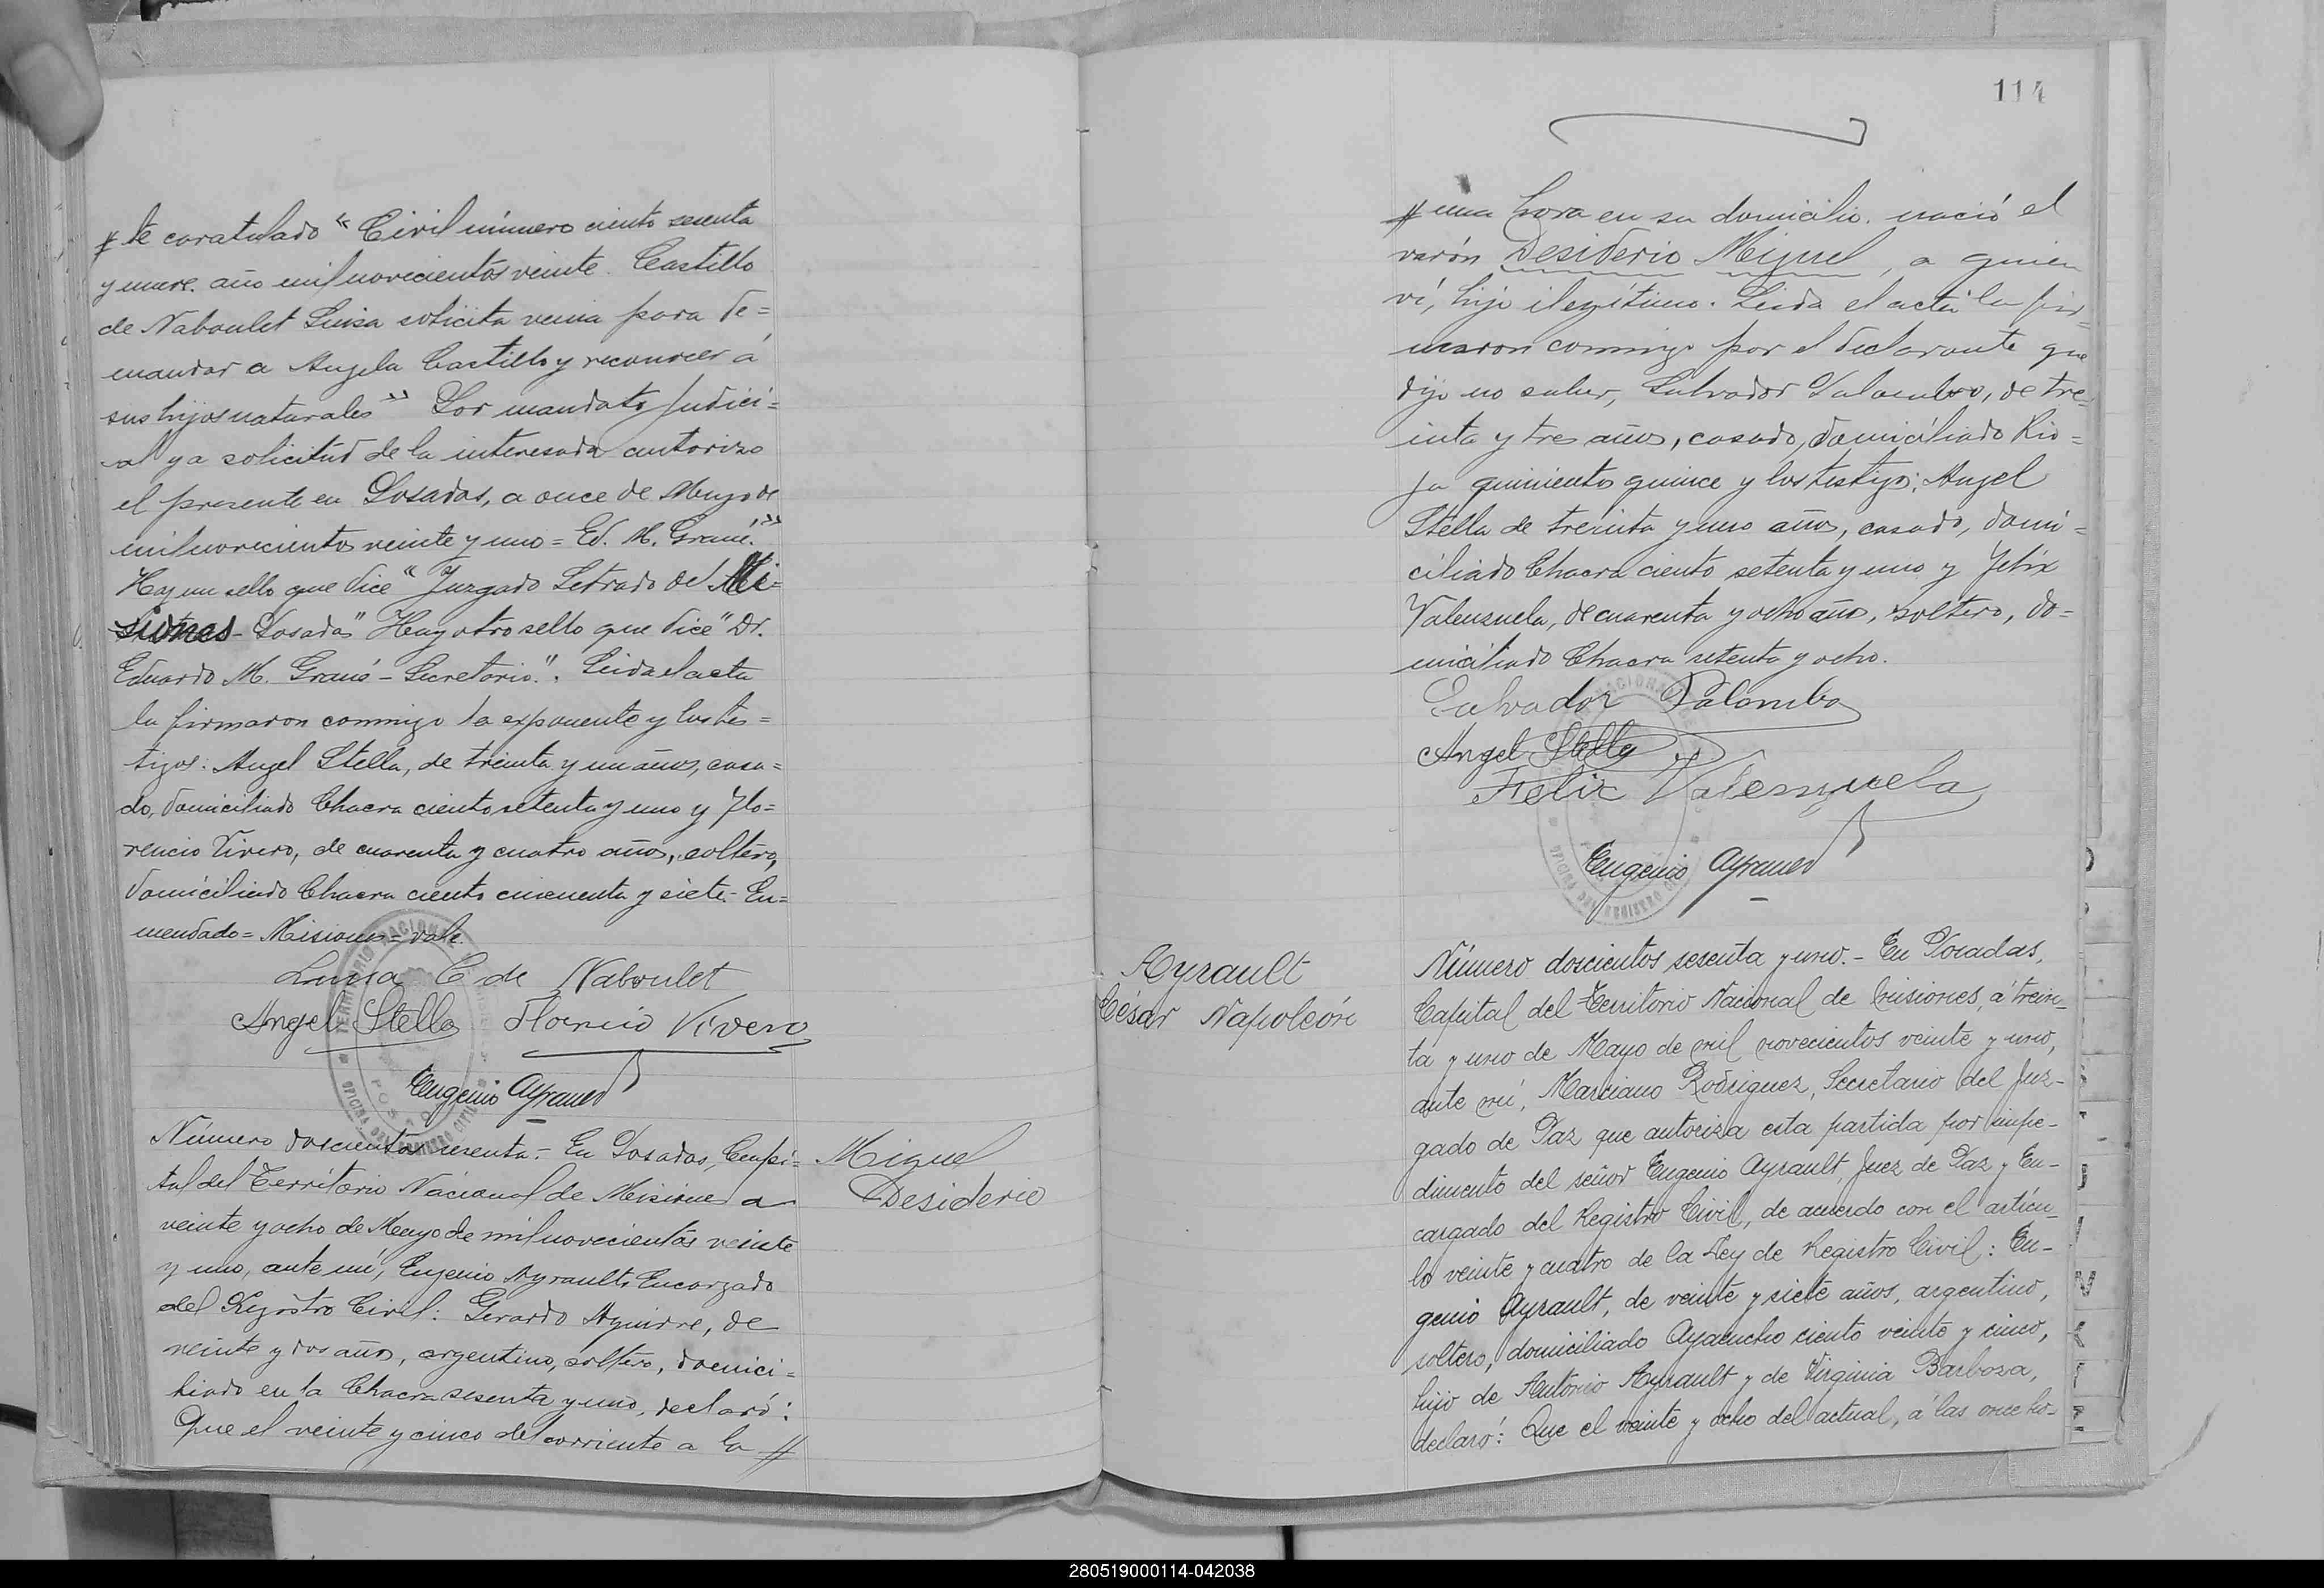 te caratulado "Civil número ciento sesenta
y nueve. año mil novecientos veinte. Castillo
de Naboulet Luisa solicita venia para de=
mandar a Angela Castillo y reconocer á
sus hijos naturales" Por mandato judici=
al y a solicitud de la interesada autorizo
el presente en Posadas, a once de Mayo de
mil novecientos veinte y uno = Ed. M. Grané."
Hay un sello que dice "Juzgado Letrado de Mi=
siones - Posadas" Hay otro sello que dice "Dr.
Eduardo M. Grané - Secretario". Leida el acta
la firmaron conmigo la exponente y los tes=
tigos: Angel Stella, de treinta y un años, casa=
do, domiciliado Chacra ciento setenta y uno y Flo=
rencio Vivero, de cuarenta y cuatro años, soltero,
domiciliado Chacra ciento cincuenta y siete - En=
mendado = Misiones = vale.
Luisa C de Naboulet
Angel Stella Florencio Vivero
Eugenio Ayrault
Número doscientos sesenta.- En Posadas, Capi=
tal del Territorio Nacional de Misiones a
veinte y ocho de Mayo de mil novecientos veinte
y uno, ante mí, Eugenio Ayrault, Encargado
del Registro Civil: Gerardo Aguirre, de
veinte y dos años, argentino, soltero, domici=
liado en la Chacra sesenta y uno, declaró:
Que el veinte y cinco del corriente a la //
Miguel
Desiderio
114
// una hora en su domicilio. nació el
varón Desiderio Miguel, a quien
ví, hijo ilegítimo. Leida el acta la fir=
maron conmigo por el declarante que
dijo no saber, Salvador Palombo, de tre=
inta y tres años, casado, domiciliado Rio=
ja quinientos quince y los testigos: Angel
Stella de treinta y uno años, casado, domi=
ciliado Chacra ciento setenta y uno y Félix
Valenzuela, de cuarenta y ocho años, soltero, do=
miciliado Chacra setenta y ocho.
Salvador Palombo
Angel Stella
Felix Valenzuela
Eugenio Ayrault
Ayrault
César Napoleón
Número doscientos sesenta y uno.- En Posadas,
Capital del Territorio Nacional de Misiones, á trein-
ta y uno de Mayo de mil novecientos veinte y uno,
ante mí, Marciano Rodriguez, Secretario del Juz-
gado de Paz que autoriza esta partida por impe-
dimento del señor Eugenio Ayrault, Juez de Paz y En-
cargado del Registro Civil, de acuerdo con el artícu-
lo veinte y cuatro de la Ley de Registro Civil: Eu-
genio Ayrault, de veinte y siete años, argentino,
soltero, domiciliado Ayacucho ciento veinte y cinco,
hijo de Antonio Ayrault y de Virginia Barboza,
declaró: Que el veinte y ocho del actual, á las once ho-
280519000114-042038